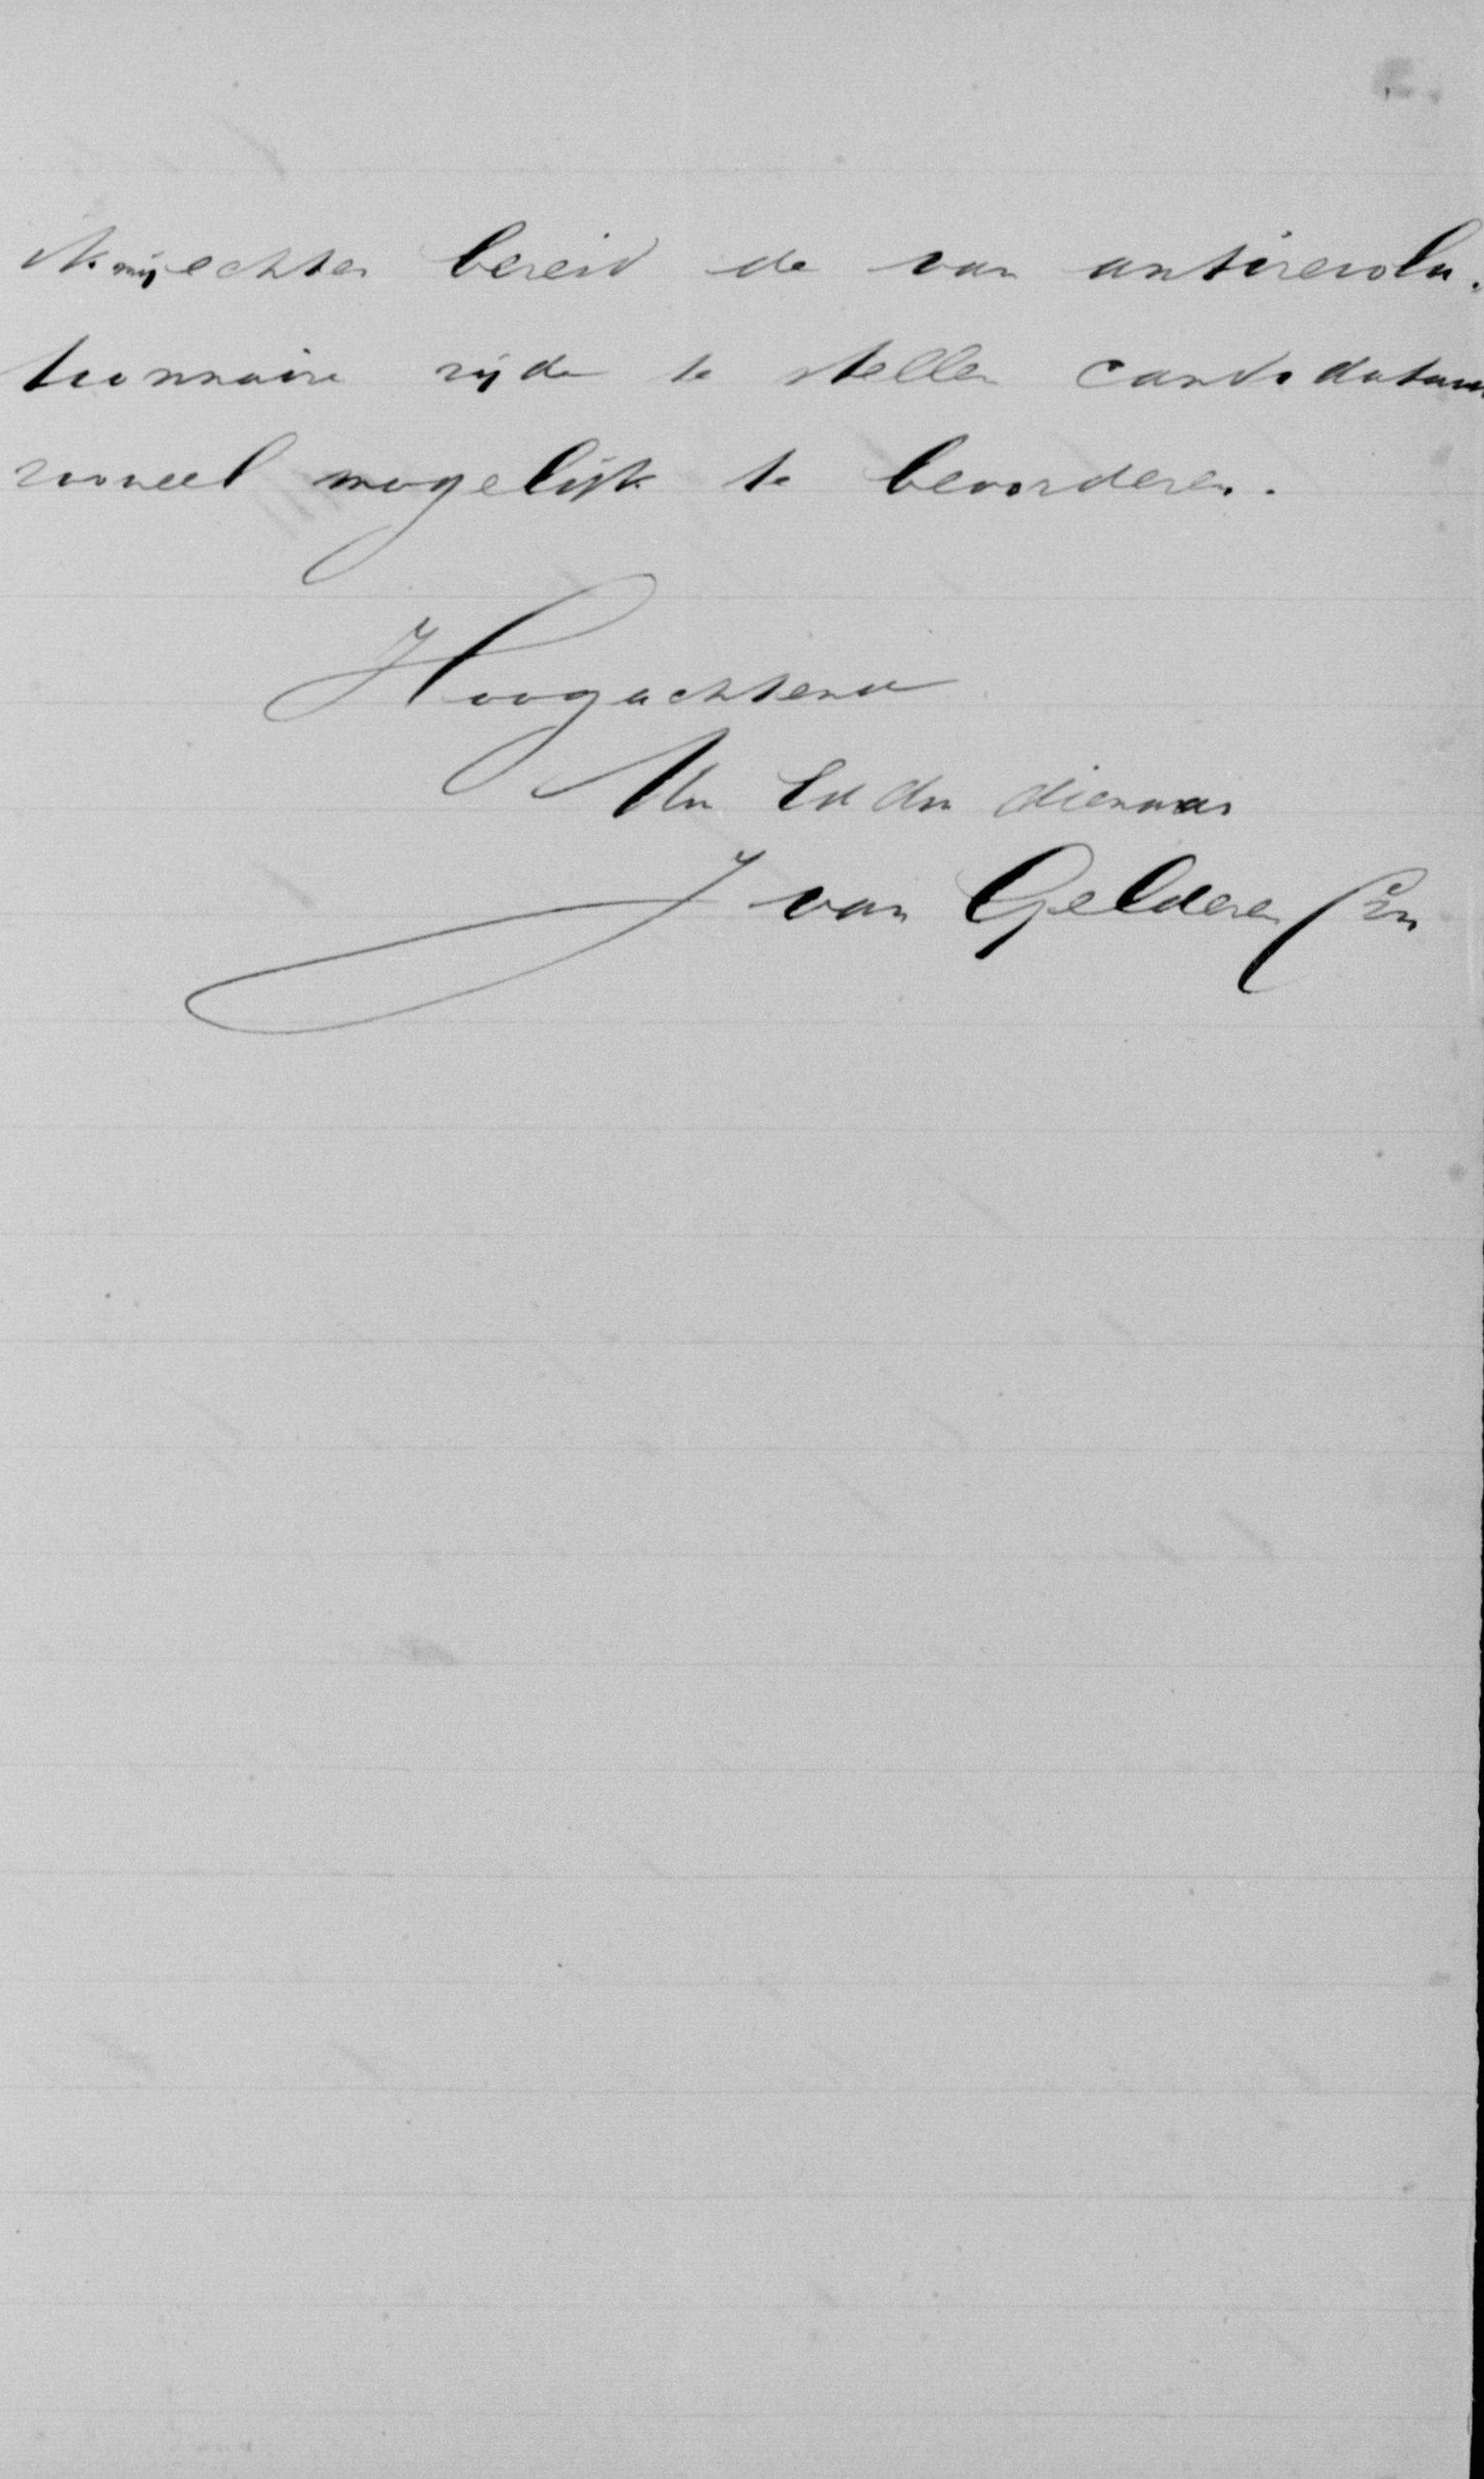 ik mij echter bereid de van antirevolu-
tionnaire zijde te stellen candidaturen
zooveel mogelijk te bevorderen.
Hoogachtend
Uw Ed dw dienaar
J van Gelderen